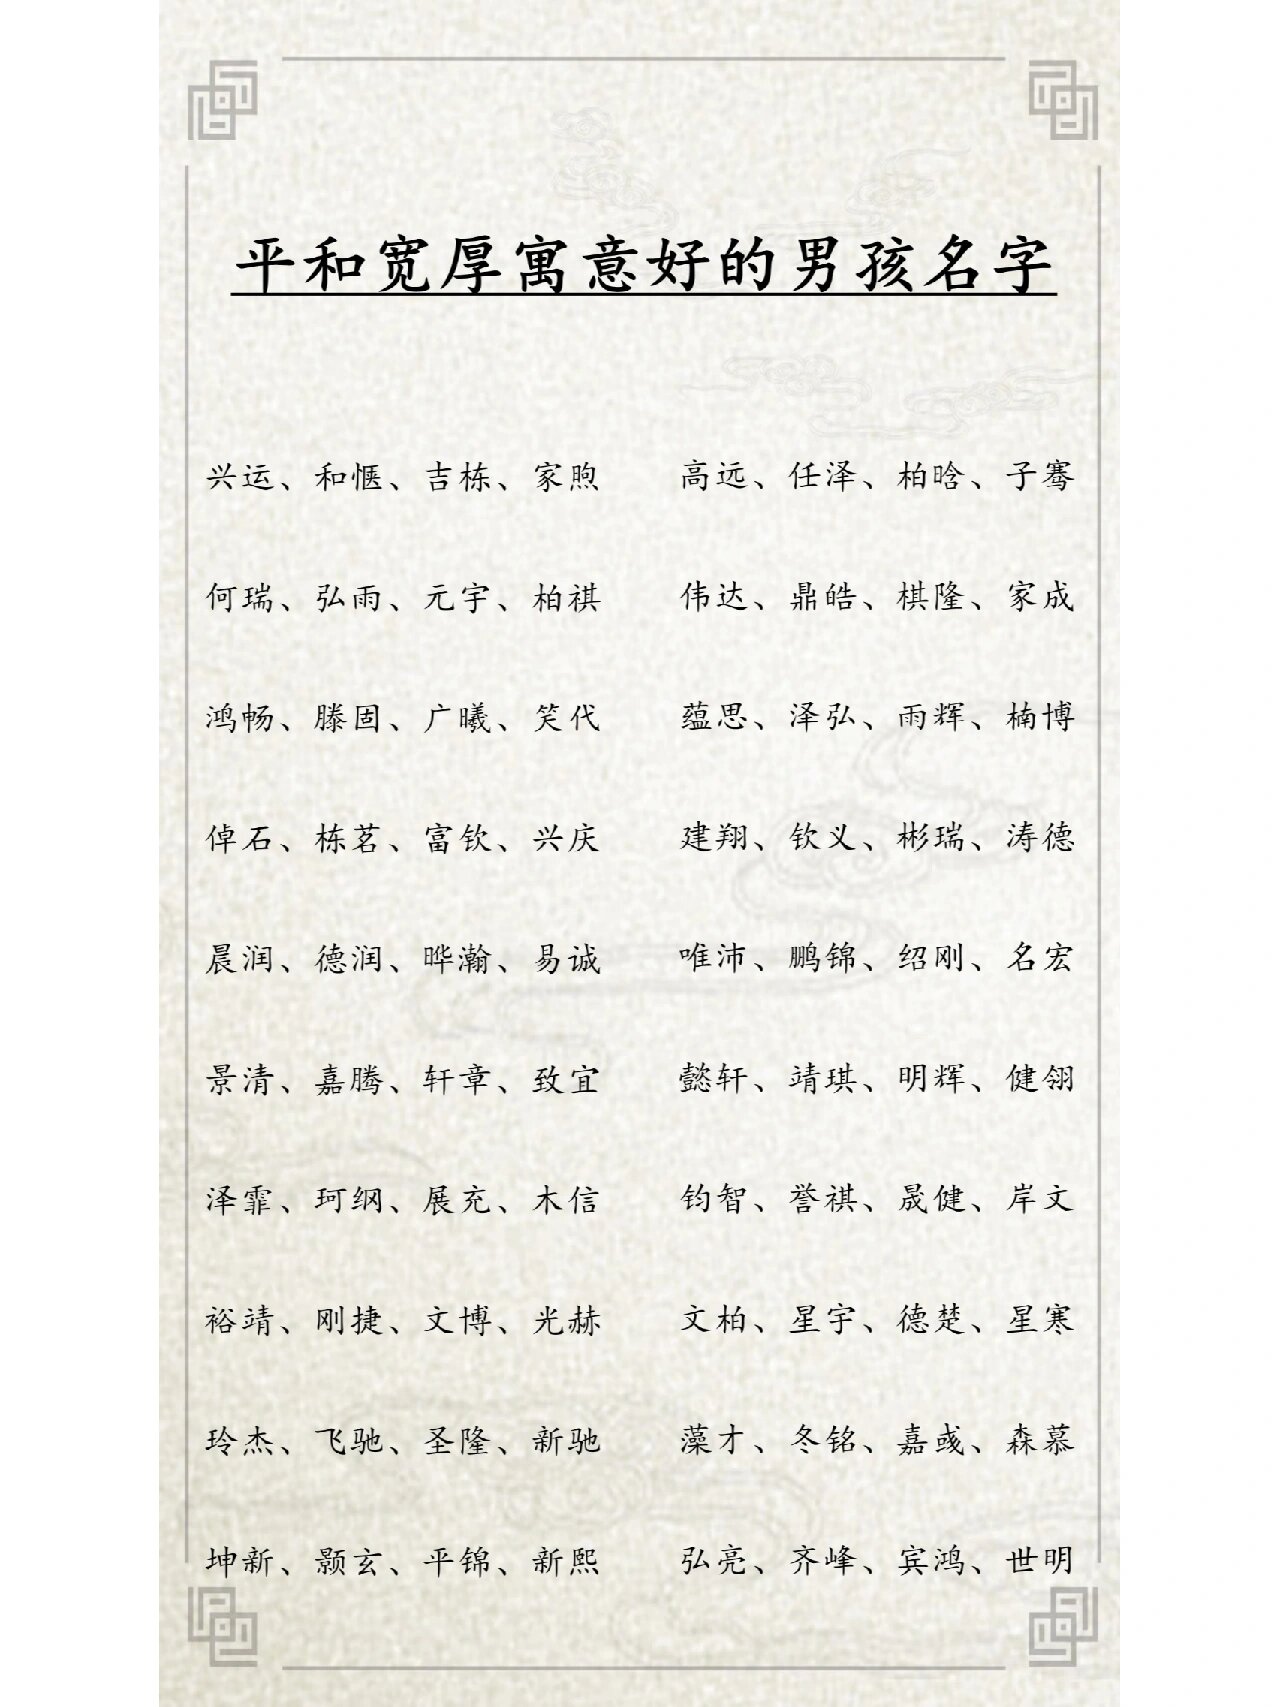 平和宽厚寓意好的男孩名字
兴运、和惬、吉栋、家煦 高远、任泽、柏晗、子骞
何瑞、弘雨、元宇、柏祺 伟达、鼎皓、棋隆、家成
鸿畅、滕固、广曦、笑代 蕴思、泽弘、雨辉、楠博
倬石、栋茗、富钦、兴庆 建翔、钦义、彬瑞、涛德
晨润、德润、晔瀚、易诚 唯沛、鹏锦、绍刚、名宏
景清、嘉腾、轩章、致宜 懿轩、靖琪、明辉、健翎
泽霏、珂纲、展充、木信 钧智、誉祺、晟健、岸文
裕靖、刚捷、文博、光赫 文柏、星宇、德楚、星寒
玲杰、飞驰、圣隆、新驰 藻才、冬铭、嘉彧、森慕
坤新、颢玄、平锦、新熙 弘亮、齐峰、宾鸿、世明